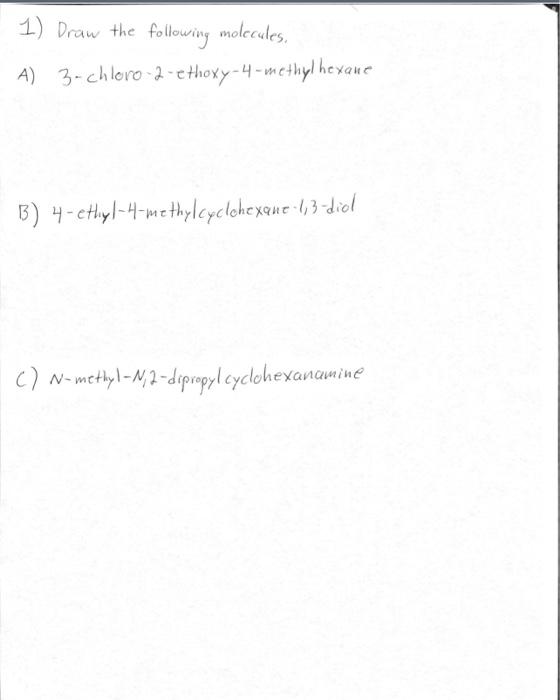 1) Draw the following molecules.
A) 3-chloro-2-ethoxy-4-methylhexane
B) 4-ethyl-4-methylcyclohexane-1,3-diol
C) N-methyl-N,2-dipropylcyclohexanamine